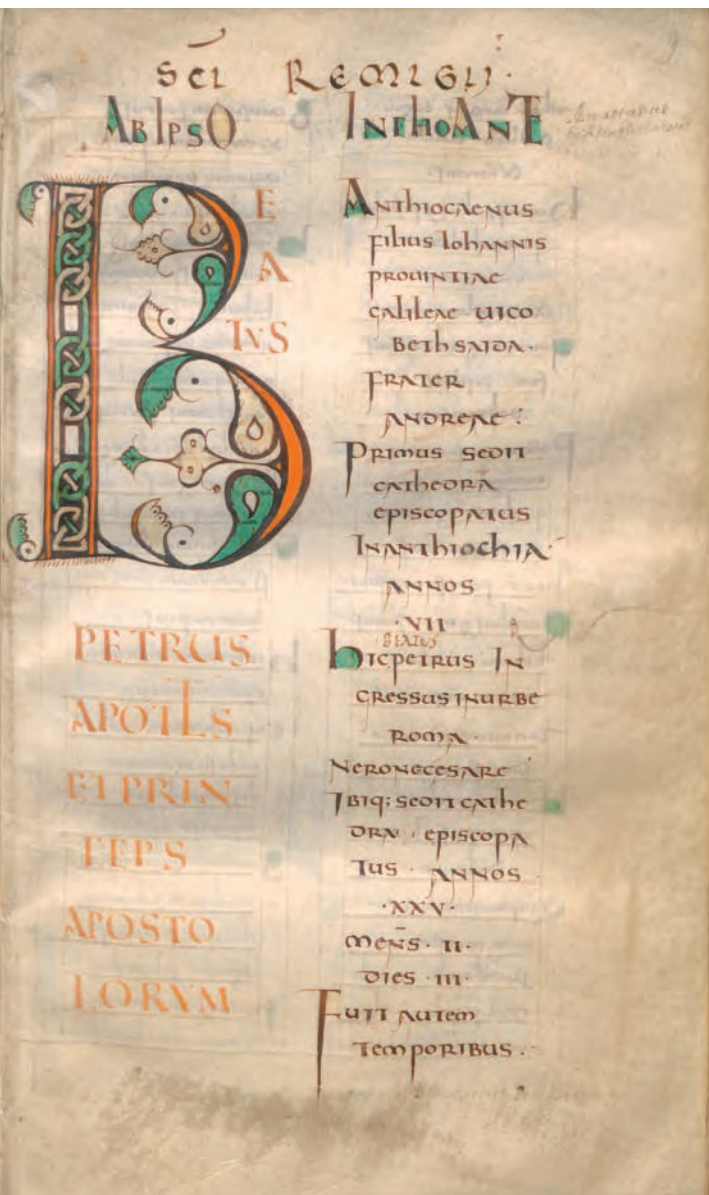 SCI REMIGII·
AB IPSO INCHOANT
BE
A
TVS
PETRUS
APOTLS
ET PRIN
CEPS
APOSTO
LORVM
ANTHIOCAENUS
FILIUS IOHANNIS
PROUINTIAE
GALILEAE UICO
BETHSAIDA·
FRATER
ANDREAE
PRIMUS SEDIT
CATHEDRA
EPISCOPATUS
IN ANTHIOCHIA·
ANNOS
·VII·
BEATUS
HIC PETRUS IN
GRESSUS IN URBE
ROMA·
NERONE CESARE
IBIQ: SEDIT CATHE
DRA· EPISCOPA
TUS· ANNOS·
·XXV·
MENS· II·
DIES ·III·
FUIT AUTEM
TEMPORIBUS·